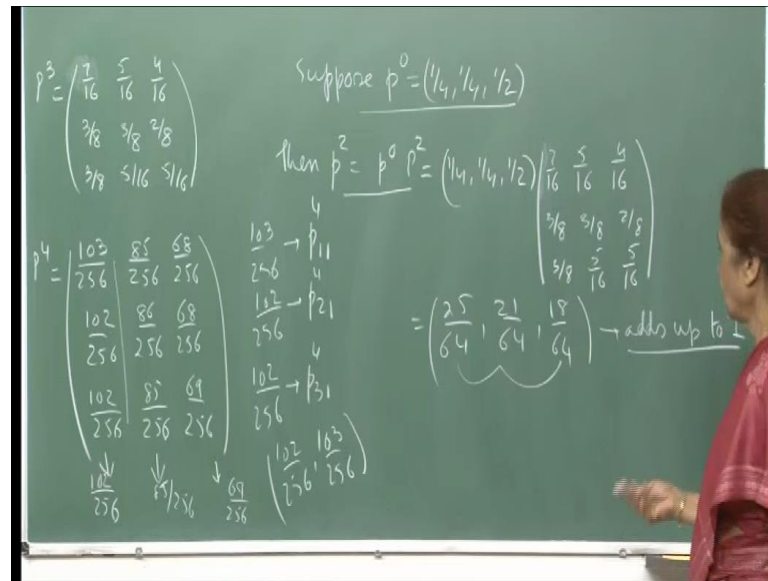 P³ = ( 7/16 5/16 4/16
3/8 3/8 2/8
3/8 5/16 5/16 )
P⁴ = ( 103/256 85/256 68/256
102/256 86/256 68/256
102/256 85/256 69/256 )
102/256 85/256 69/256
103/256 → p₁₁⁴
102/256 → p₂₁⁴
102/256 → p₃₁⁴
( 102/256 , 103/256 )
Suppose p⁰ = (1/4, 1/4, 1/2)
then p² = p⁰ P² = (1/4, 1/4, 1/2) ( 7/16 5/16 4/16
3/8 3/8 2/8
3/8 5/16 5/16 )
= ( 25/64 , 21/64 , 18/64 ) → adds up to 1